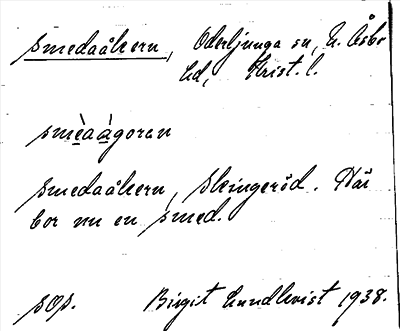 Smedaåkern, Oderljunga sn, N. Åsbo
hd, Krist. l.
smèaàgoran
Smedaåkern, Slingeröd. Här
bor nu en smed.
sos.
Birgit Lundkvist 1938.